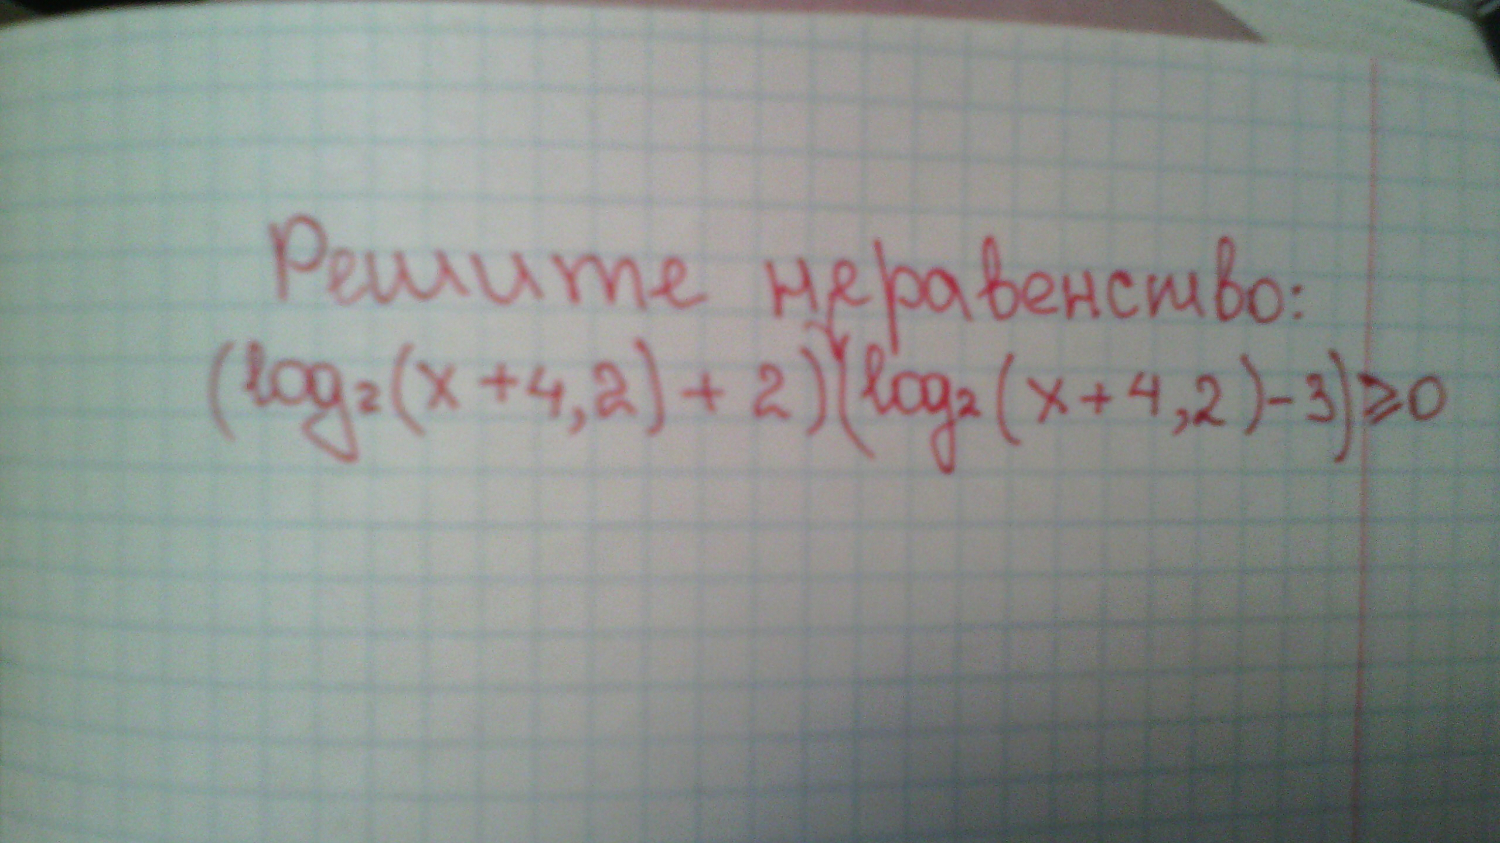 Решите неравенство:
(log₂(x+4,2)+2)(log₂(x+4,2)-3)⩾0